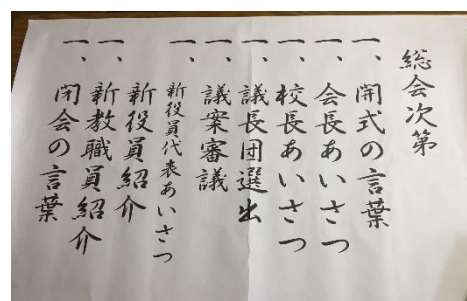 総会次第
一、開式の言葉
一、会長あいさつ
一、校長あいさつ
一、議長団選出
一、議案審議
一、新役員代表あいさつ
新役員紹介
一、新教職員紹介
一、閉会の言葉